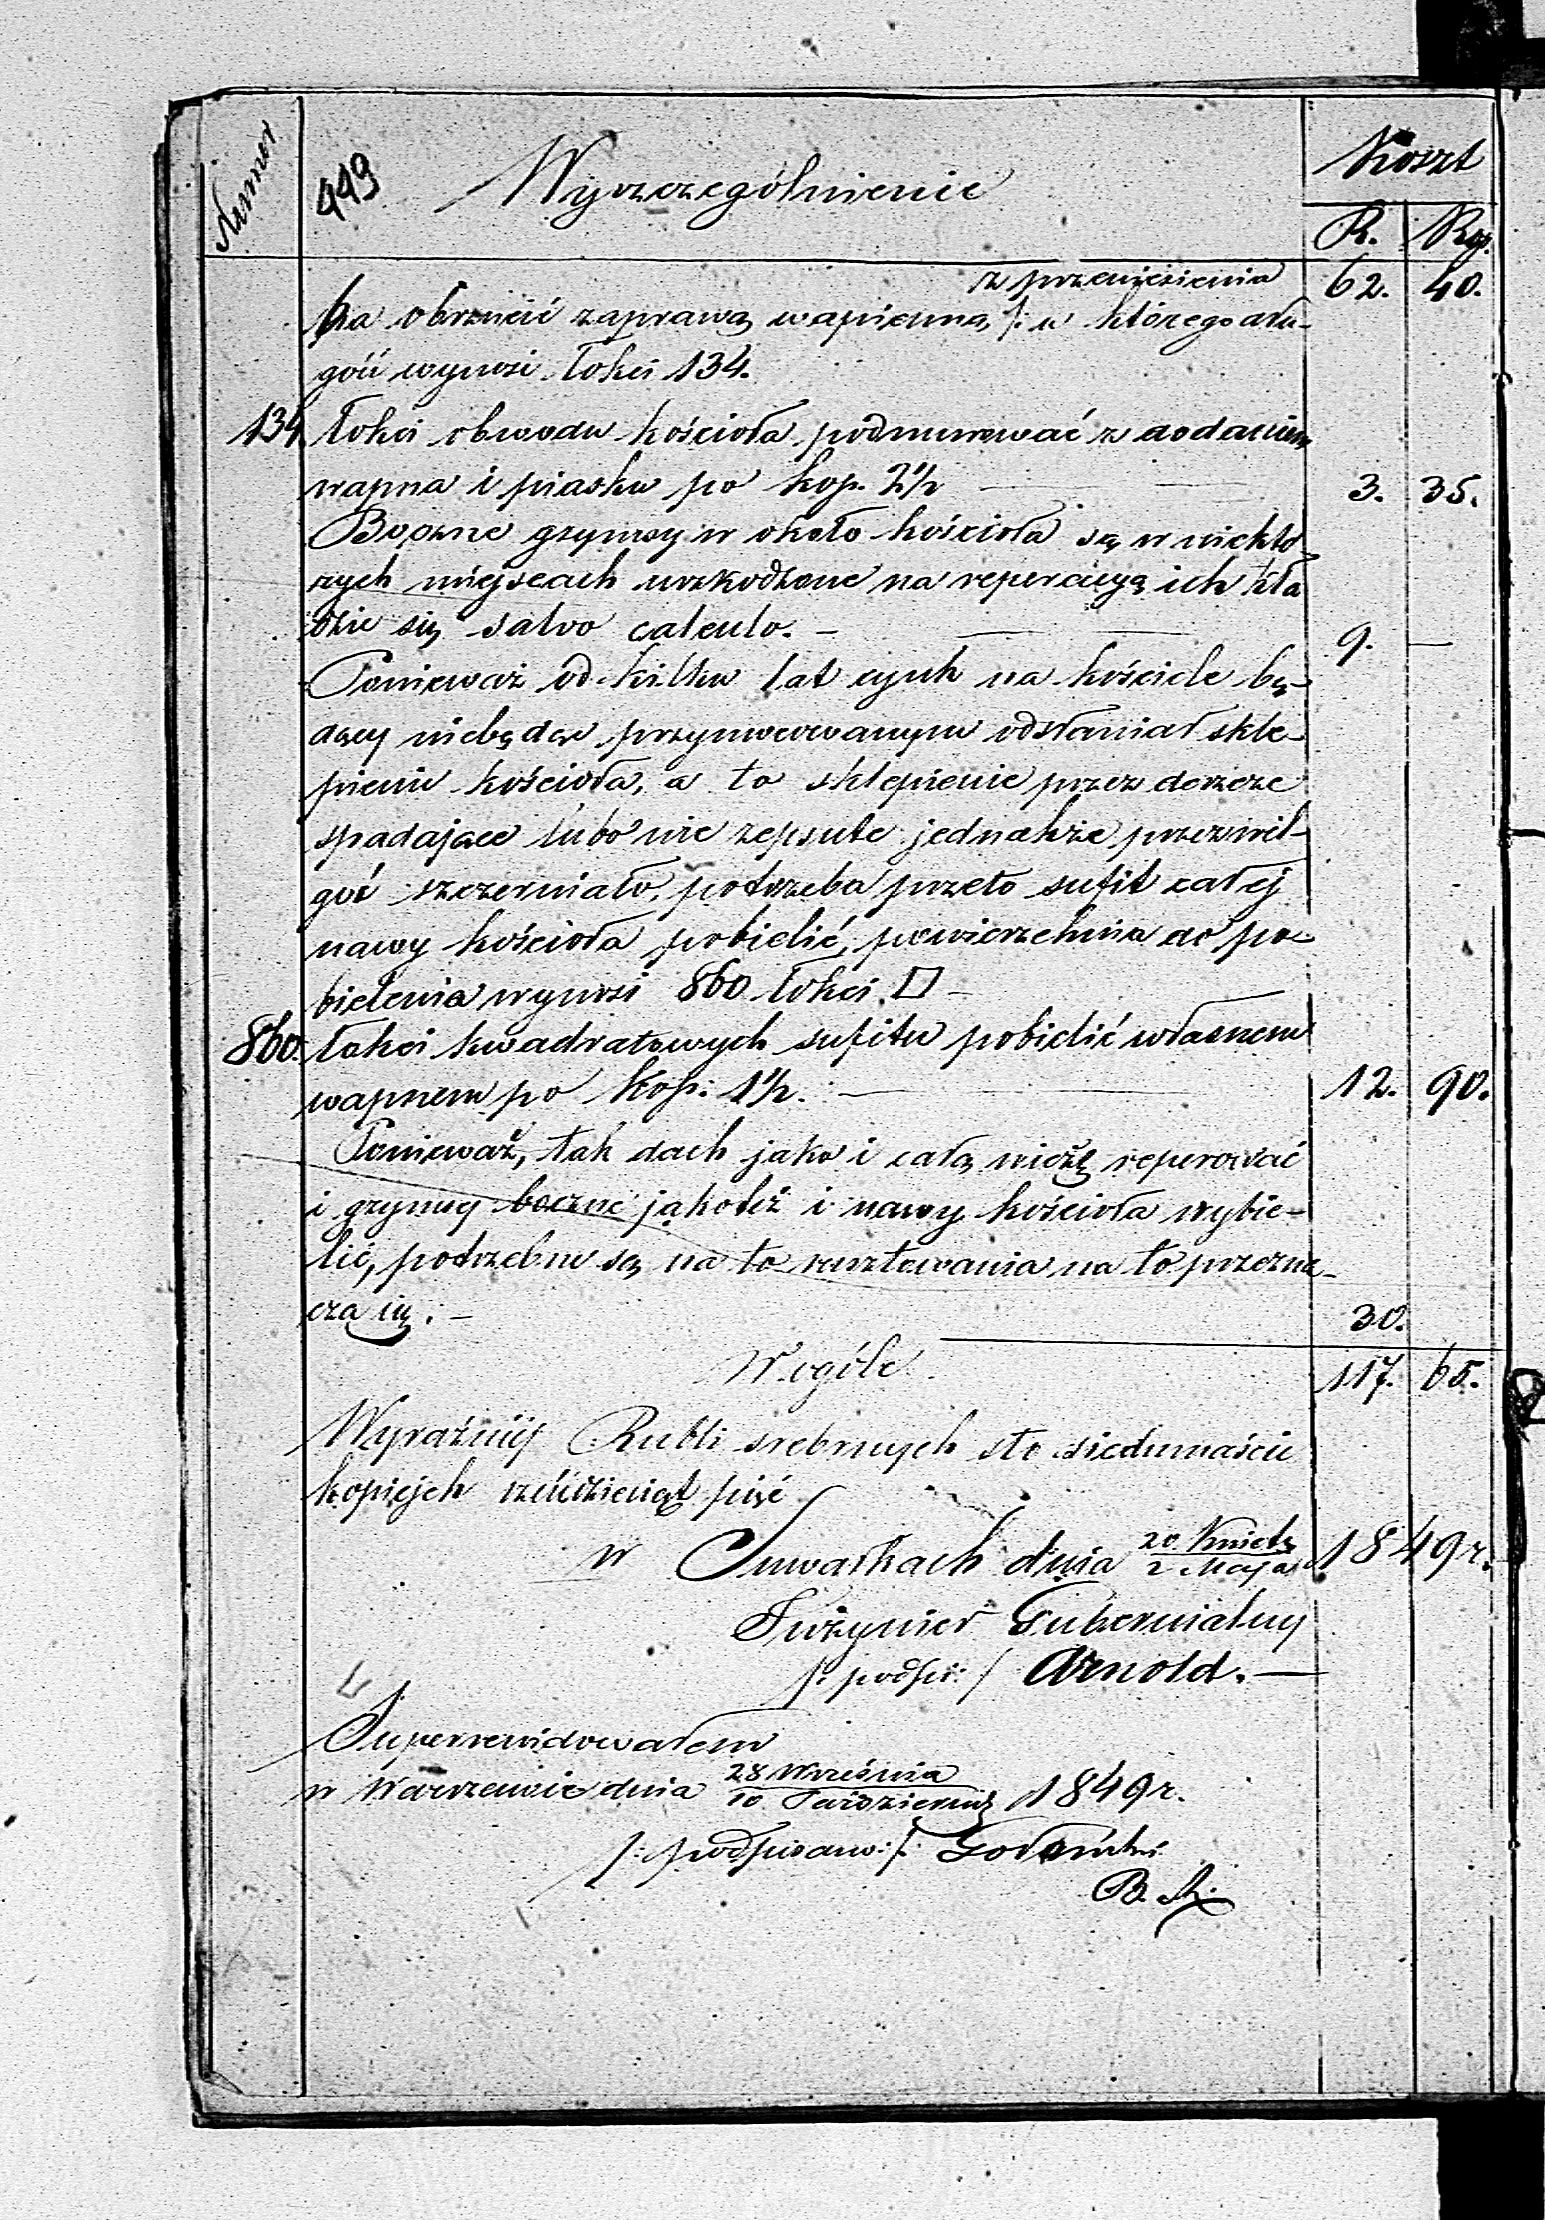 Numer 443 Wyszczególnienie Koszt
R. Kop.
z przeniesienia 62. 40.
ba obrzucić zaprawą wapienną /: w którego dłu-
gość wynosi łokci 134.
134 łokci obwodu kościoła podmurować z dodaniem
wapna i piasku po kop. 2½ 3. 35.
Boczne gzymsy w około kościoła są w niektó-
rych miejscach uszkodzone na reperacyą ich kła
dzie się salvo calculo. — 9. —
Ponieważ od kilku lat cynk na kościele bę-
dący niebędąc przymocowanym odsłaniał skle-
pienie kościoła, a to sklepienie przez deszcze
spadające lubo nie zepsute jednakże przez wil-
goć szczerniało, potrzeba przeto sufit całej
nawy kościoła pobielić, powierzchnia do po-
bielenia wynosi 860 łokci □ —
860. łokci kwadratowych sufitu pobielić własnem
wapnem po kop: 1½. — 12. 90.
Ponieważ, tak dach jako i całą wieżę reperować
i gzymsy boczne jakoteż i nawy kościoła wybie-
lić, potrzebne są na to rusztowania na to przezna-
cza się. — 30.
W ogóle 117. 65.
Wyraźniej Rubli srebrnych sto siedmnaście
kopiejek sześćdziesiąt pięć
w Suwałkach dnia 20 Kwiet. / 2 Maja 1849 r.
Inżynier Gubernialny
/: podpis: / Arnold. —
Superrewidowałem
w Warszawie dnia 28 Września / 10 Październik 1849 r.
/: podpisano: /
B. K.